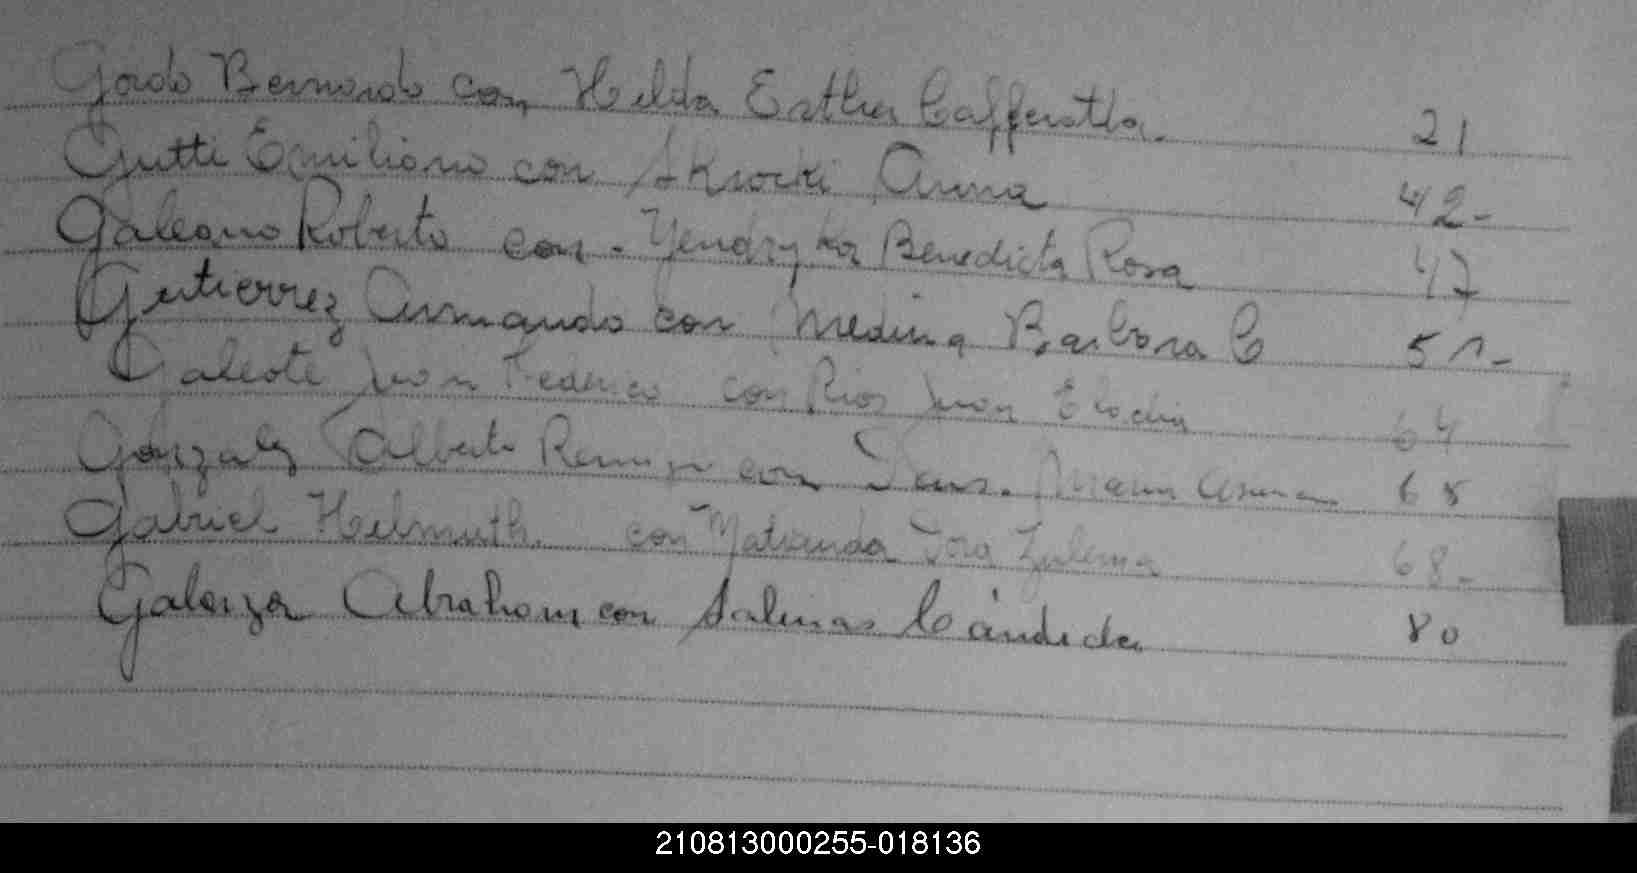 Gordo Bernardo con Helda Esther Cafferatta. 21
Gutti Emiliano con Anna 42-
Galeano Roberto con. Yendryka Benedicta Rosa 47
Gutierrez Armando con Medina Barbara C 51-
Galeote Juan Federico con Rios Juan Elodia 64
Gonzalez Alberto Remigio con Maria 65
Gabriel Helmuth. con Zulema 68-
Galarza Abraham con Salinas Cándida 80
210813000255-018136